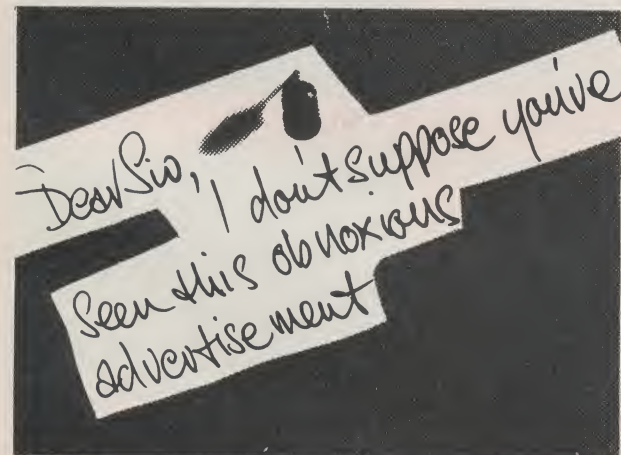 Dear Sio,
I don't suppose you've
seen this obnoxious
advertisement